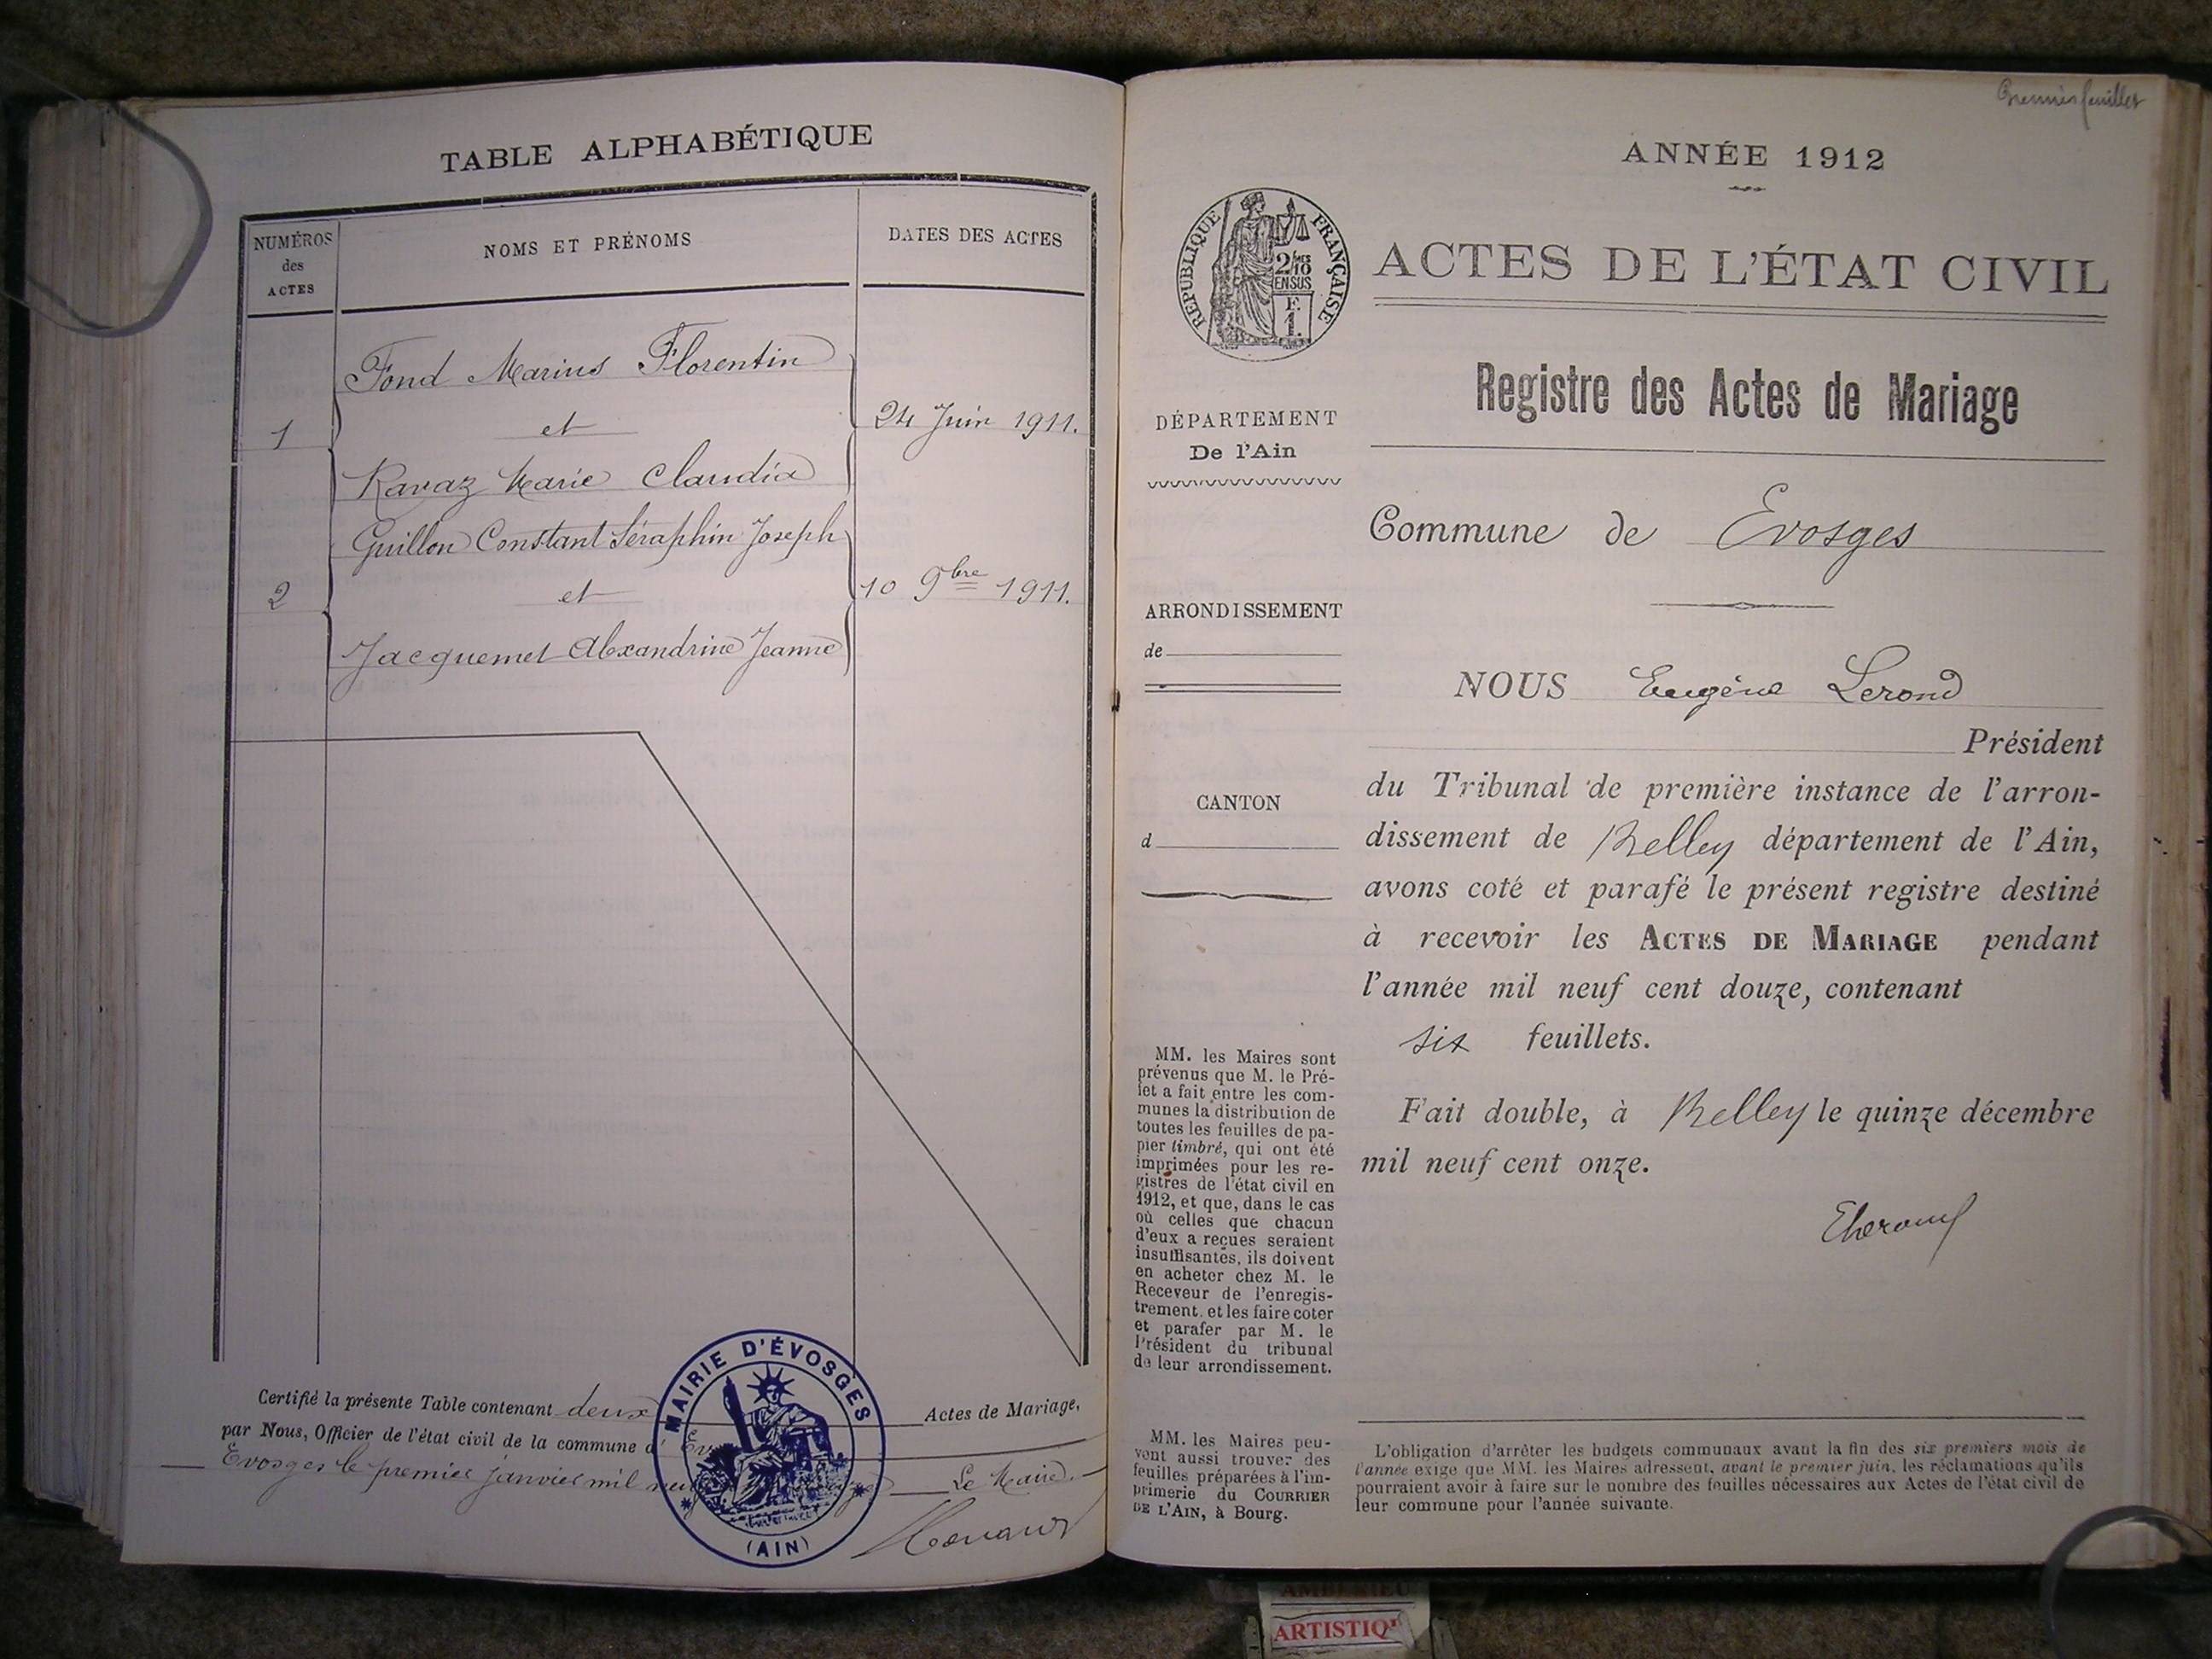 TABLE ALPHABÉTIQUE
NUMÉROS
des
ACTES
NOMS ET PRÉNOMS
DATES DES ACTES
Fond Marius Florentin
1
et
24 Juin 1911.
Ravaz Marie Claudia
Guillon Constant Séraphin Joseph
2
et
10 9bre 1911.
Jacquemet Alexandrine Jeanne
Certifié la présente Table contenant deux Actes de Mariage,
par Nous, Officier de l'état civil de la commune d'
Evosges le premier janvier mil Le Maire.
MAIRIE D'ÉVOSGES
(AIN)
Premier feuillet
ANNÉE 1912
RÉPUBLIQUE FRANÇAISE
2/10MES
EN SUS
F.
1.
ACTES DE L'ÉTAT CIVIL
Registre des Actes de Mariage
DÉPARTEMENT
De l'Ain
ARRONDISSEMENT
de
CANTON
d
Commune de Evosges
NOUS Eugène Lerond
Président
du Tribunal de première instance de l'arron-
dissement de Belley département de l'Ain,
avons coté et parafé le présent registre destiné
à recevoir les ACTES DE MARIAGE pendant
l'année mil neuf cent douze, contenant
six feuillets.
Fait double, à Belley le quinze décembre
mil neuf cent onze.
MM. les Maires sont
prévenus que M. le Pré-
fet a fait entre les com-
munes la distribution de
toutes les feuilles de pa-
pier timbré, qui ont été
imprimées pour les re-
gistres de l'état civil en
1912, et que, dans le cas
où celles que chacun
d'eux a reçues seraient
insuffisantes, ils doivent
en acheter chez M. le
Receveur de l'enregis-
trement, et les faire coter
et parafer par M. le
Président du tribunal
de leur arrondissement.
MM. les Maires peu-
vent aussi trouver des
feuilles préparées à l'im-
primerie du COURRIER
DE L'AIN, à Bourg.
L'obligation d'arrêter les budgets communaux avant la fin des six premiers mois de
l'année exige que MM. les Maires adressent, avant le premier juin, les réclamations qu'ils
pourraient avoir à faire sur le nombre des feuilles nécessaires aux Actes de l'état civil de
leur commune pour l'année suivante.